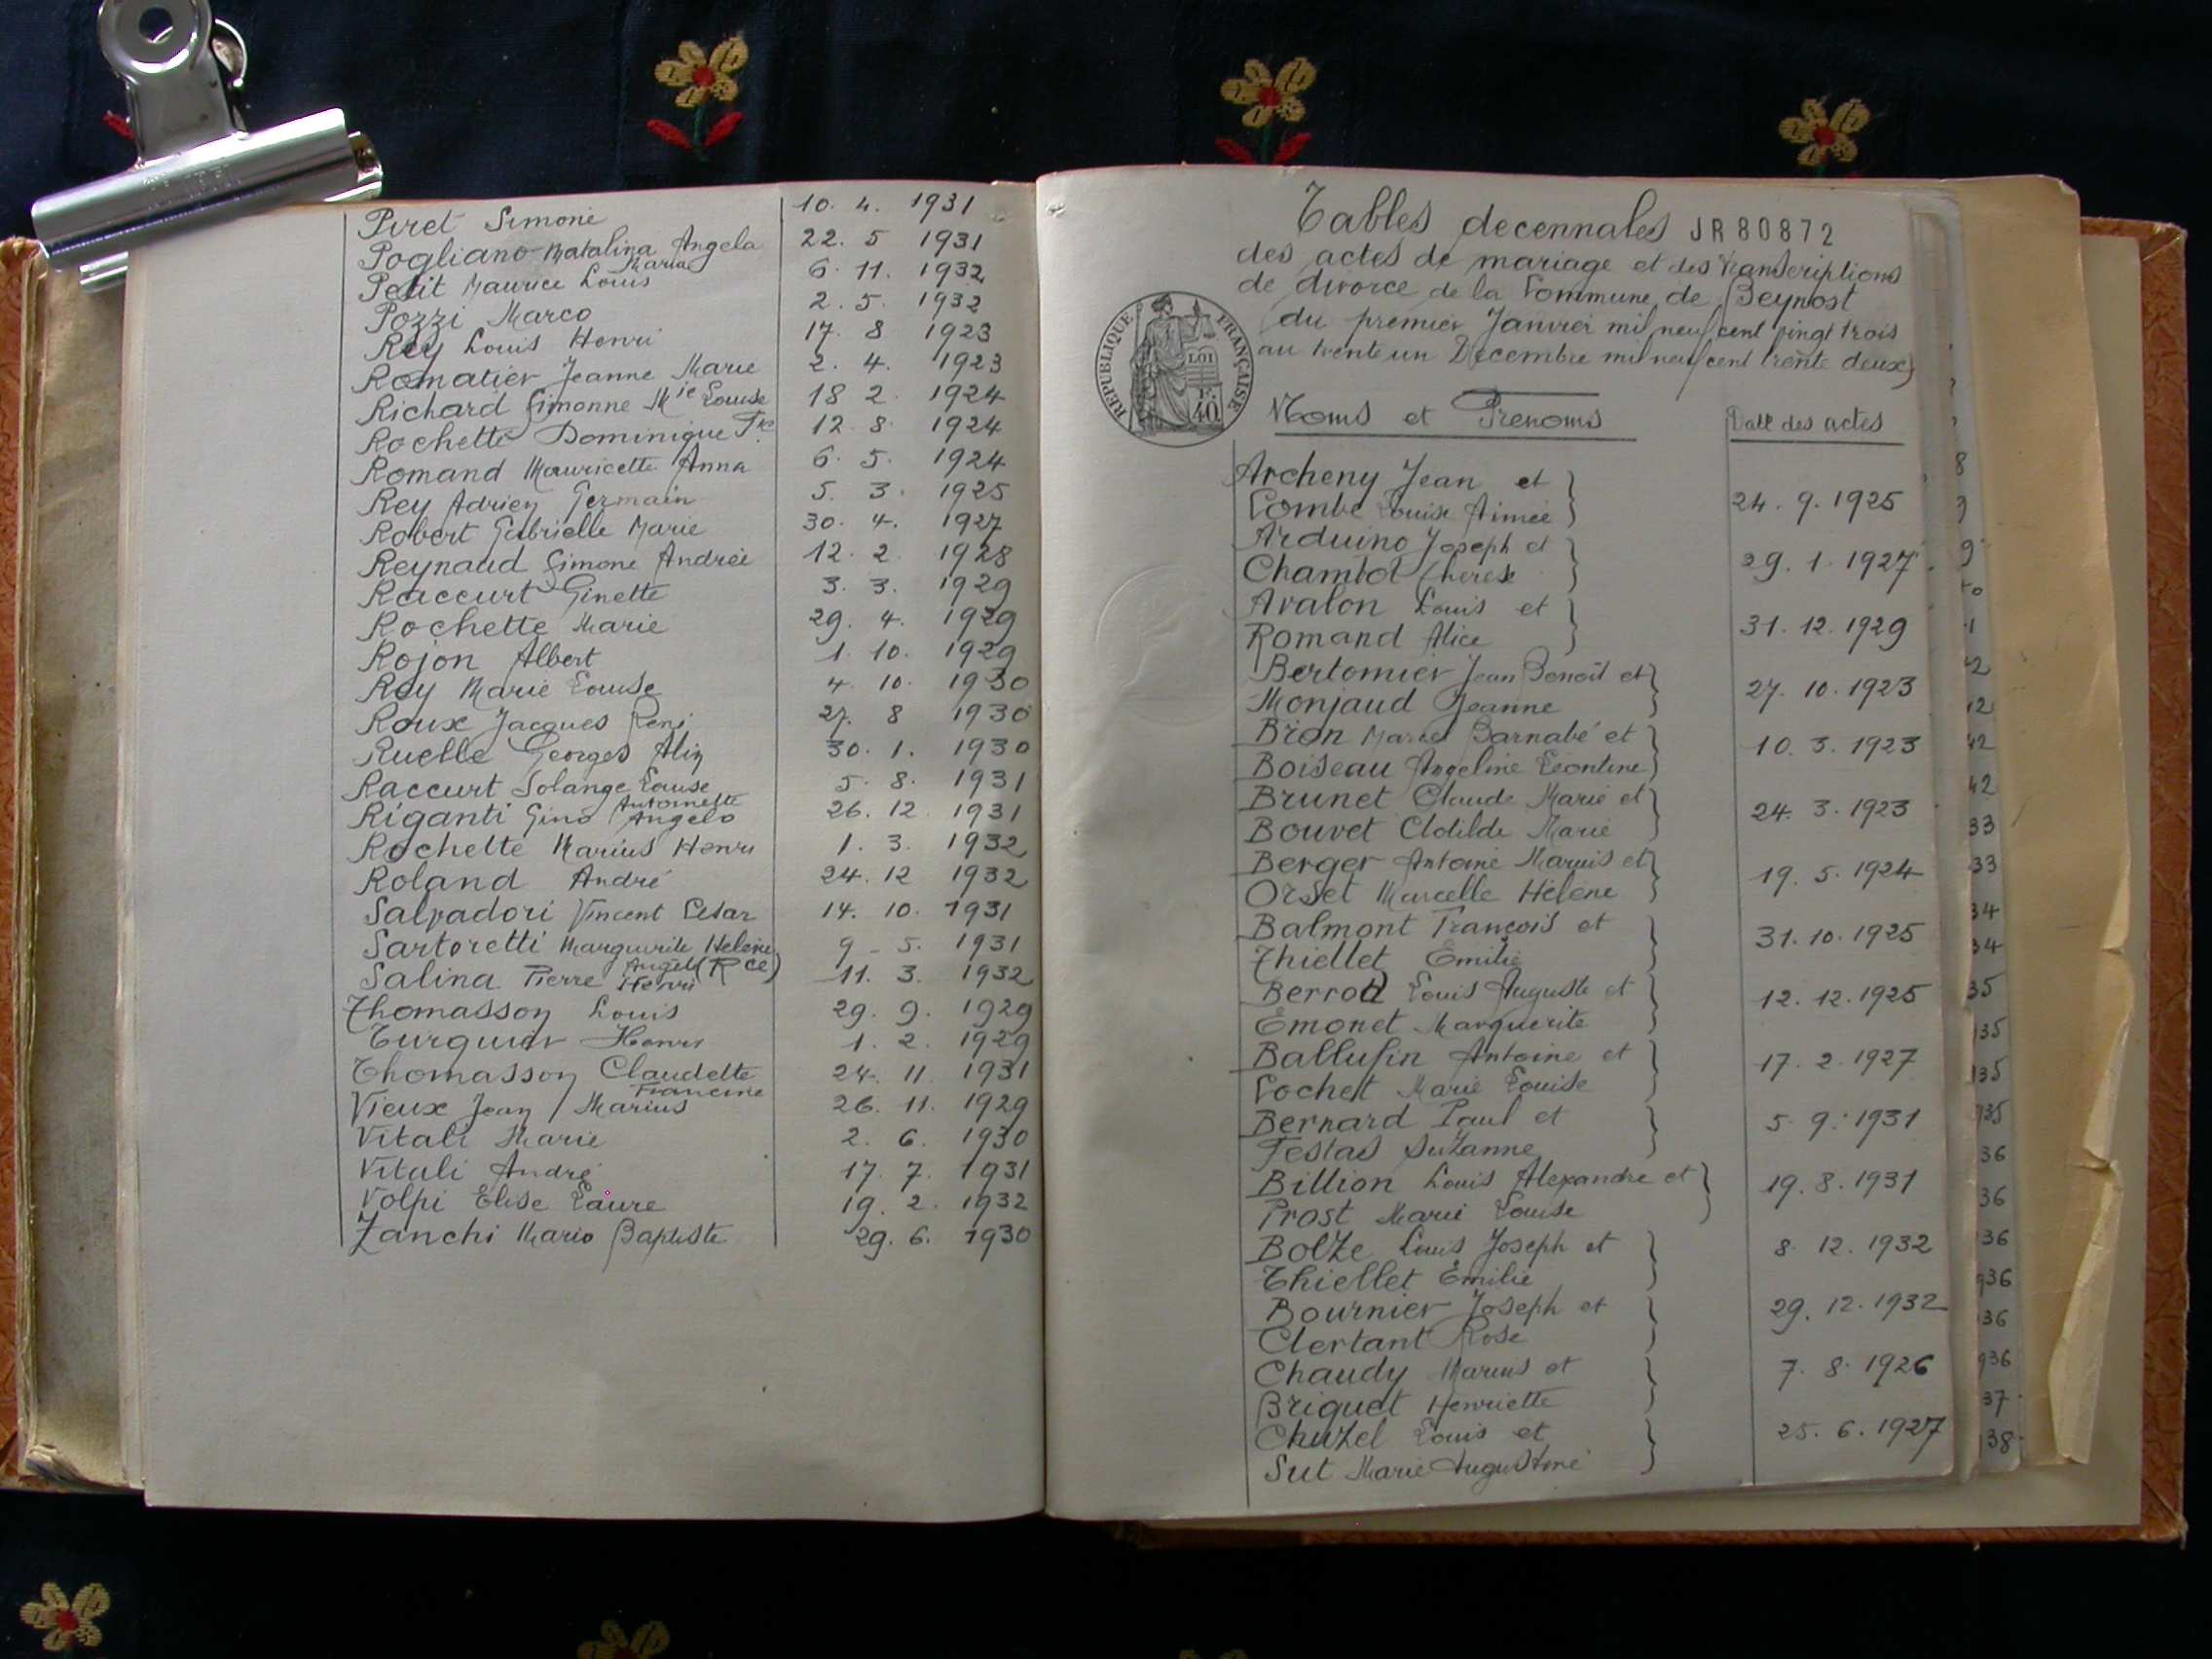 Piret Simone 10. 4. 1931
Pogliano Natalina Angela Maria 22. 5 1931
Petit Maurice Louis 6. 11. 1932
Pozzi Marco 2. 5. 1932
Rey Louis Henri 17. 8 1923
Romatier Jeanne Marie 2. 4. 1923
Richard Simonne Mie Louise 18 2. 1924
Rochette Dominique Fs 12. 8. 1924
Romand Mauricette Anna 6. 5. 1924
Rey Adrien Germain 5. 3. 1925
Robert Gabrielle Marie 30. 4. 1927
Reynaud Simone Andrée 12. 2. 1928
Raccurt Ginette 3. 3. 1929
Rochette Marie 29. 4. 1929
Rojon Albert 1. 10. 1929
Rey Marie Louise 4. 10. 1930
Roux Jacques René 27. 8 1930
Ruelle Georges 30. 1. 1930
Raccurt Solange Louise Antoinette 5. 8. 1931
Riganti Gino Angelo 26. 12. 1931
Rochette Marius Henri 1. 3. 1932
Roland André 24. 12 1932
Salvadori Vincent Cesar 14. 10. 1931
Sartoretti Marguerite Helene 9 - 5. 1931
Salina Pierre Angel (Rce) Henri 11. 3. 1932
Thomasson Louis 29. 9. 1929
Turquier Henri 1. 2. 1929
Thomasson Claudette Francine 24. 11. 1931
Vieux Jean Marius 26. 11. 1929
Vitali Marie 2. 6. 1930
Vitali André 17. 7. 1931
Volpi Elise Laure 19. 2. 1932
Zanchi Mario Baptiste 29. 6. 1930
Tables decennales JR80872
des actes de mariage et des transcriptions
de divorce de la Commune de Beynost
du premier Janvier mil neuf cent vingt trois
au trente un Décembre mil neuf cent trente deux
RÉPUBLIQUE FRANÇAISE
LOI
40
Noms et Prenoms Date des actes
Archeny Jean et
Combe Louise Aimée 24. 9. 1925
Arduino Joseph et
Thérèse 29. 1. 1927
Avalon Louis et
Romand Alice 31. 12. 1929
Bertomier Jean Benoît et
Monjaud Jeanne 27. 10. 1923
Bron Marcel Barnabé et
Boiseau Angeline Léontine 10. 3. 1923
Brunet Claude Marie et
Bouvet Clotilde Marie 24. 3. 1923
Berger Antoine Marius et
Orset Marcelle Hélène 19. 5. 1924
Balmont François et
Thiellet Emilie 31. 10. 1925
Berrod Louis Auguste et
Emonet Marguerite 12. 12. 1925
Ballufin Antoine et
Cochet Marie Louise 17. 2. 1927
Bernard Paul et
Festas Suzanne 5 9. 1931
Billion Louis Alexandre et
Prost Marie Louise 19. 8. 1931
Bolze Louis Joseph et
Thiellet Emilie 8. 12. 1932
Bournier Joseph et
Clertant Rose 29. 12. 1932
Chaudy Marius et
Briguet Henriette 7. 8. 1926
Chuzel Louis et
Sut Marie Augustine 25. 6. 1927